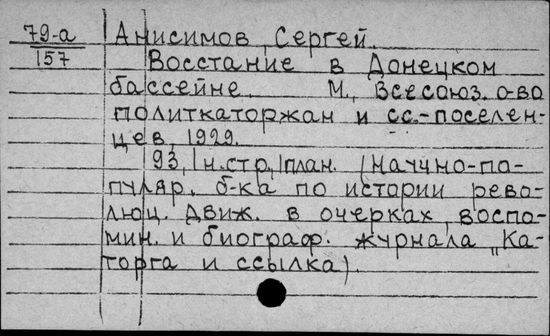 79-а Анисимов, Сергей.
157
Восстание в Донецком
бассейне. М., Всесоюз. о-во
политкаторжан и сс.-поселен-
цев, 1929.
93, 1 н. стр, 1 план. (Научно-по-
пуляр. б-ка по истории рево-
люц. движ. в очерках, воспо-
мин. и биограф. журнала „Ка-
торга и ссылка).